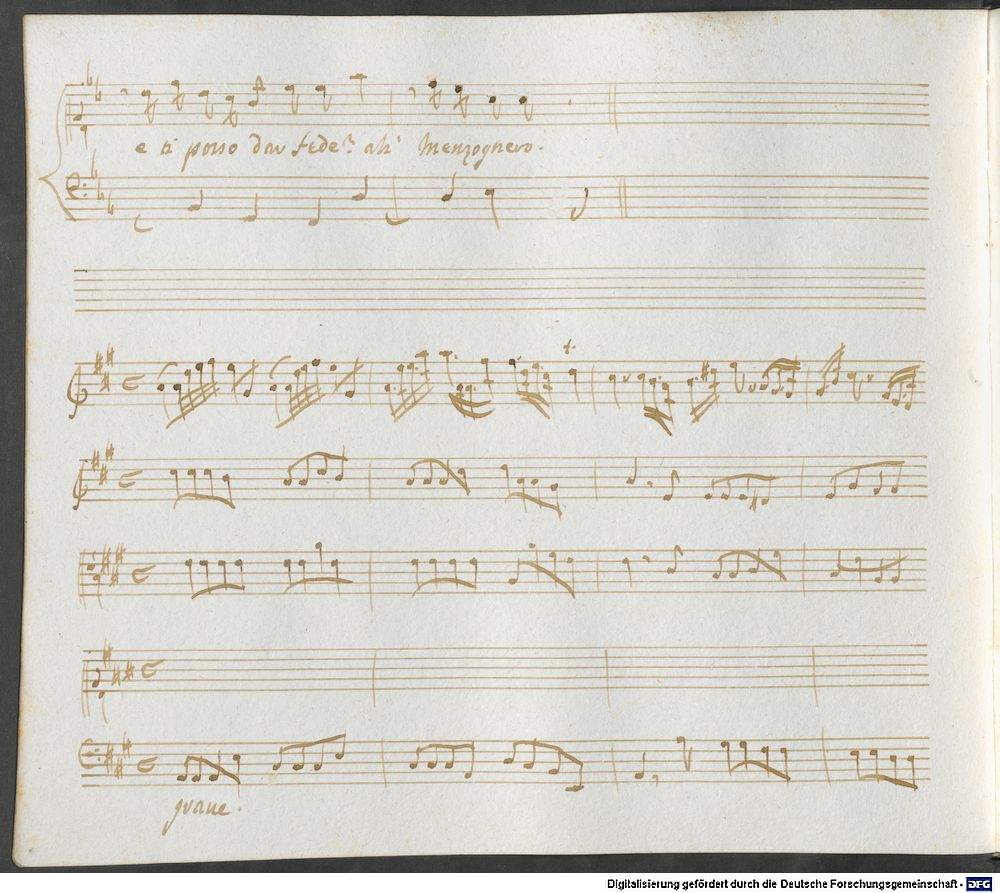 e ti posso dar fede? ah' Menzognero.
grave.
Digitalisierung gefördert durch die Deutsche Forschungsgemeinschaft - DFG